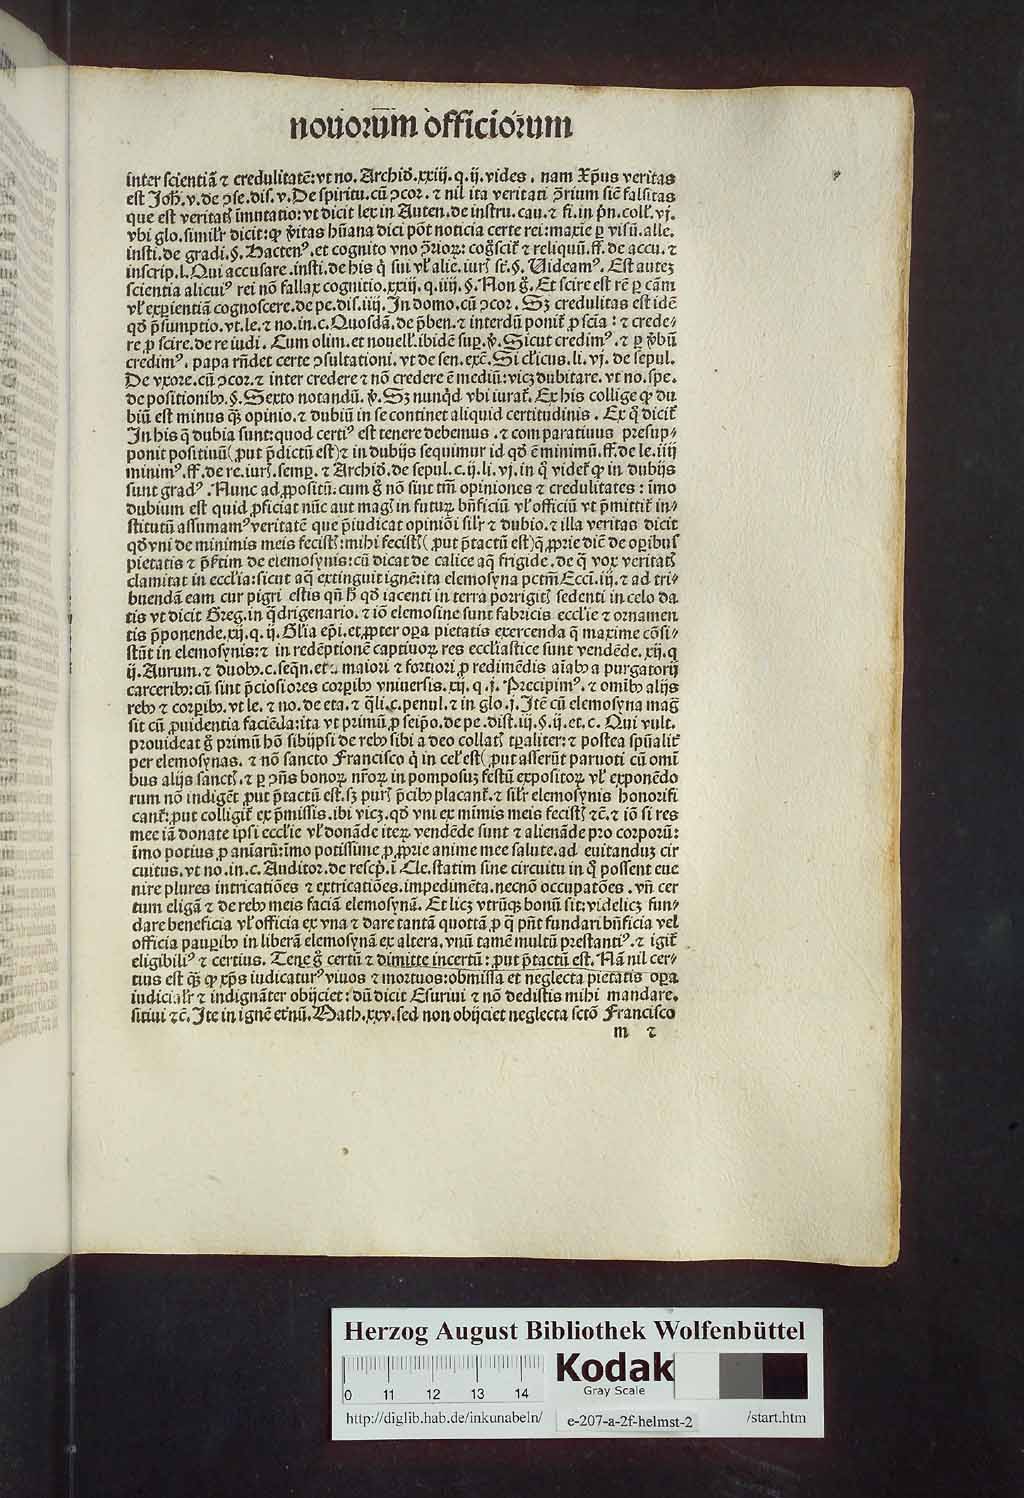 novorūm officiorum
inter scientiā ⁊ credulitatē: vt no. Archid̄. xxiij. q. ij. vides. nam Xp̄us veritas
est Joh̄. v. de ↄse. dis. v. De spiritu. cū ↄcor. ⁊ nil ita veritati ↄ̄rium siē falsitas
que est veritatꝭ imutatio: vt dicit lex in Auten. de instru. cau. ⁊ fi. in pn̄. coll'. vj.
vbi glo. simil'r dicit: ꝙ v̄itas hūana dici pōt noticia certe rei: maxīe ꝑ visū. alle.
insti. de gradi. §. Hactenꝰ. et cognito vno ↄ̄rioꝝ: cog̃scit̄ ⁊ reliquū. ff. de accu. ⁊
inscrip. l. Qui accusare. insti. de his q̇ sui vl' alie. iurꝭ st̄. §. Uideamꝰ. Est auteꝫ
scientia alicuiꝰ rei nō fallax cognitio. xxiij. q. iiij. §. Non g̊. Et scire est rē ꝑ cām
vl' exꝑientiā cognoscere. de pe. dis. iiij. In domo. cū ↄcor. Sꝫ credulitas est idē
qd̄ p̄sumptio. vt. le. ⁊ no. in. c. Quosdā. de p̄ben. ⁊ interdū ponit̄ ꝓ scīa: ⁊ crede⸗
re ꝓ scire. de re iudi. Cum olim. et nouell'. ibidē suꝑ. v̄. Sicut credimꝰ. ⁊ ꝑ v̄bū
credimꝰ. papa rn̄det certe ↄsultationi. vt de sen. exc̄. Si cl'icus. li. vj. de sepul.
De vxore. cū ↄcor. ⁊ inter credere ⁊ nō credere ē mediū: vicꝫ dubitare. vt no. spe.
de positionibꝰ. §. Sexto notandū. v̄. Sꝫ nunq̇d vbi iurat̄. Ex his collige ꝙ du
biū est minus qͣꝫ opinio. ⁊ dubiū in se continet aliquid certitudinis. Ex qͦ dicit̄
In his q̄ dubia sunt: quod certiꝰ est tenere debemus. ⁊ comparatiuus presup⸗
ponit positiuū (ꝓut p̄dictū est) ⁊ in dubijs sequimur id qd̄ ē minimū. ff. de le. iiij
minimꝰ. ff. de re. iurꝭ. semꝑ. ⁊ Archid̄. de sepul. c. ij. li. vj. in qͦ videt̄ ꝙ in dubijs
sunt gradꝰ. Nunc ad ꝓpositū. cum g̊ nō sint tm̄ opiniones ⁊ credulitates: īmo
dubium est quid ꝓficiat nūc aut magꝭ in futuꝝ bn̄ficiū vl' officiū vt p̄mittit̄ in⸗
stitutū assumamꝰ veritatē que p̄iudicat opiniōi sil'r ⁊ dubio. ⁊ illa veritas dicit
qd̄ vni de minimis meis fecistꝭ: mihi fecistꝭ (ꝓut p̄tactū est) q̄ ꝓprie dic̄ de oꝑibus
pietatis ⁊ p̄s̄tim de elemosynis: cū dicat de calice aq̄ frigide. de qͣ vox veritatꝭ
clamitat in eccl'ia: sicut aqͣ extinguit ignē: ita elemosyna pctm̄ Eccī. iij. ⁊ ad tri⸗
buendā eam cur pigri estis qn̄ h̄ qd̄ iacenti in terra porrigitꝭ sedenti in celo da
tis vt dicit Greg. in qͣdrigenario. ⁊ iō elemosine sunt fabricis eccl'ie ⁊ ornamen
tis p̄ponende. xij. q. ij. Gl'ia ep̄i. et. ꝓpter oꝑa pietatis exercenda q̄ maxime cōsi⸗
stūt in elemosynis: ⁊ in redēptionē captiuoꝝ res eccl'iastice sunt vendēde. xij. q
ij. Aurum. ⁊ duobꝰ. c. seqn̄. et . maiori ⁊ fortiori ꝓ redimēdis aīabꝰ a purgatorij
carceribꝰ: cū sint p̄ciosiores corꝑibꝰ vniuersis. xij. q. j. Precipimꝰ. ⁊ om̄ibꝰ alijs
rebꝰ ⁊ corꝑibꝰ. vt le. ⁊ no. de eta. ⁊ qͣli. c. penul. ⁊ in glo. j. Itē cū elemosyna mag̊
sit cū ꝓuidentia faciēda: ita vt primū ꝓ seip̄o. de pe. dist. iij. §. ij. et. c. Qui vult.
prouideat g̊ primū hō sibijpsi de rebꝰ sibi a deo collatꝭ tꝑaliter: ⁊ postea spūalit̄
per elemosynas. ⁊ nō sancto Francisco q̇ in cel' est (ꝓut asserūt paruoti cū omī
bus alijs sanctꝭ. ⁊ ꝑ ↄn̄s bonoꝝ nr̄oꝝ in pomposuꝫ festū expositoꝝ vl' exponēdo
rum nō indigēt ꝓut p̄tactū est. sꝫ purꝭ p̄cibꝰ placant̄. ⁊ sil'r elemosynis honorifi
cant̄: ꝓut colligit̄ ex p̄missis. ibi vicꝫ. qd̄ vni ex minimis meis fecistꝭ ⁊c̄. ⁊ iō si res
mee iā donate ipsi eccl'ie vl' donāde iteꝝ vendēde sunt ⁊ alienāde pro corporū:
īmo potius ꝓ aniarū: īmo potissime ꝓ ꝓprie anime mee salute. ad euitanduꝫ cir
cuitus. vt no. in. c. Auditor. de rescp̄. ī Cle. statim sine circuitu in qͦ possent eue
nire plures intricatiōes ⁊ extricatiōes. impedimēta. necnō occupatōes. vn̄ cer
tum eligā ⁊ de rebꝰ meis faciā elemosynā. Et licꝫ vtrūqꝫ bonū sit: videlicꝫ fun⸗
dare beneficia vl' officia ex vna ⁊ dare tantā quottā ꝓ qͣ pn̄t fundari bn̄ficia vel
officia pauꝑibꝰ in liberā elemosynā ex altera. vnū tamē multū prestantiꝰ. ⁊ igit̄
eligibiliꝰ ⁊ certius. Tene g̊ certū ⁊ dimitte incertū: ꝓut p̄tactū est. Nā nil cer⸗
tius est qͣꝫ ꝙ xp̄s iudicaturꝰ viuos ⁊ mortuos: obmissa et neglecta pietatis oꝑa
iudicial'r ⁊ indignāter obijciet: dū dicit Esuriui ⁊ nō dedistis mihi mandare.
sitiui ⁊c̄. Ite in ignē etnū. Math. xxv. sed non obijciet neglecta sctō Francisco
m ⁊
Herzog August Bibliothek Wolfenbüttel
0 11 12 13 14
Kodak
Gray Scale
http://diglib.hab.de/inkunabeln/ e-207-a-2f-helmst-2 /start.htm